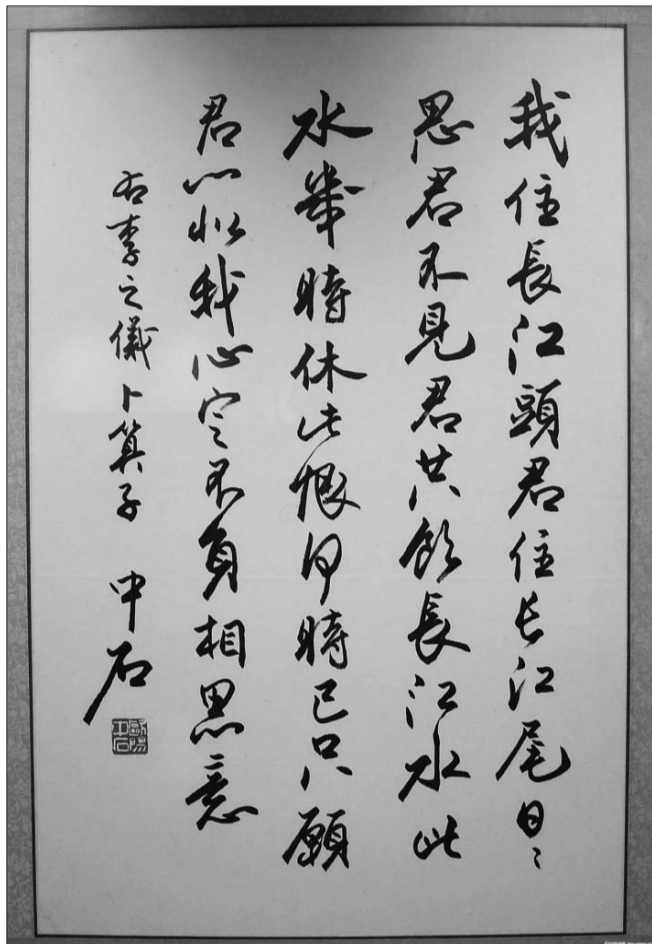 我住長江頭君住长江尾日〻
思君不見君共飲長江水此
水幾時休此恨何時已只願
君心似我心定不負相思意
右李之儀卜算子 中石
歐陽中石